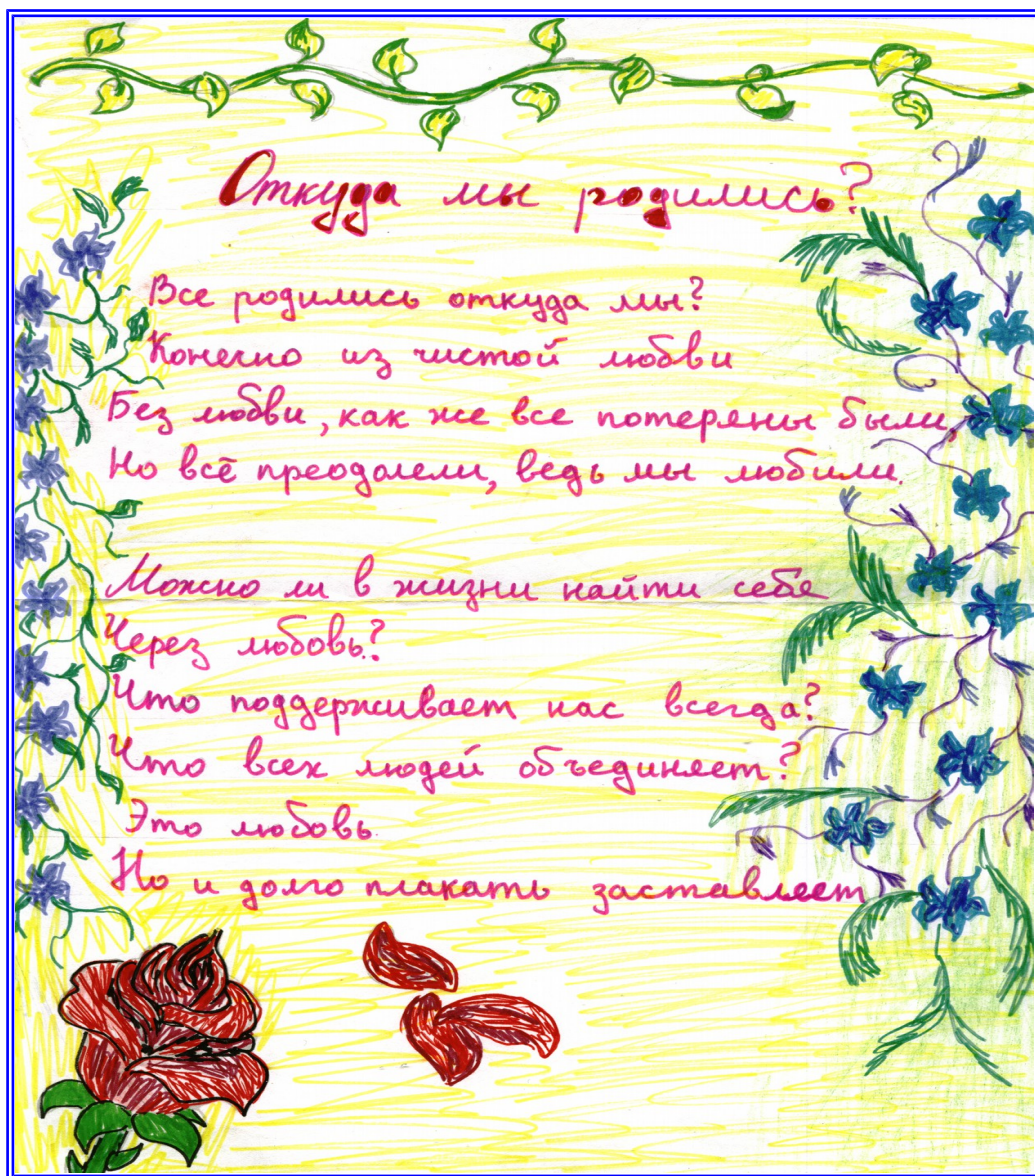 Откуда мы родились?
Все родились откуда мы?
Конечно из чистой любви
Без любви, как же все потеряны были,
Но всё преодолели, ведь мы любили.
Можно ли в жизни найти себя
Через любовь?
Что поддерживает нас всегда?
Что всех людей объединяет?
Это любовь.
Но и долго плакать заставляет